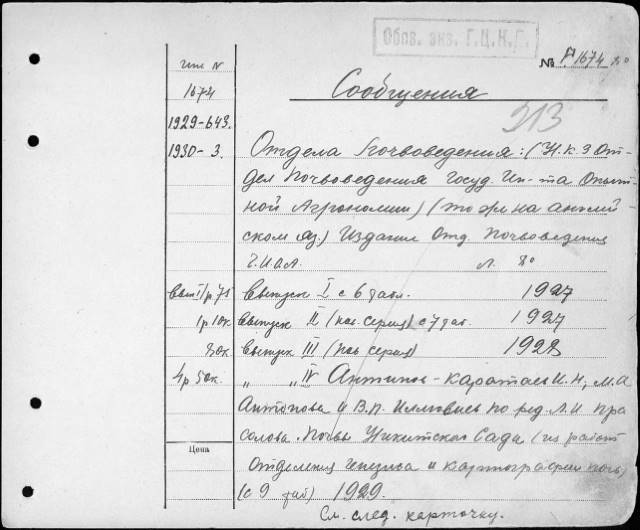 Обяз. экз. Г.Ц.К.П.
№ 1674 8°
1674
Сообщения
213
1929-643.
1930-3. Отдела Почвоведения: (Н.К.З От-
дел Почвоведения Госуд. Ин-та Опыт
ной Агрономии) (то же на англий-
ском яз.) Издание Отд. Почвоведения
Г.И.О.А. Л. 8°
вып I/р 75 Выпуск I с 6 табл. 1927
1р 10к Выпуск II (нов. серия) с 7 таб. 1927
80к Выпуск III (нов серия) 1928
4р 50к. " " IV Антипов-Каратаев И.Н., М.А.
Антонова и В.П. Иллювиев по ред. Л.И. Пра
солова. Почвы Никитского Сада (из работ
Цена
Отделения генезиса и картографии почв)
(с 9 таб) 1929.
См. след. карточку.